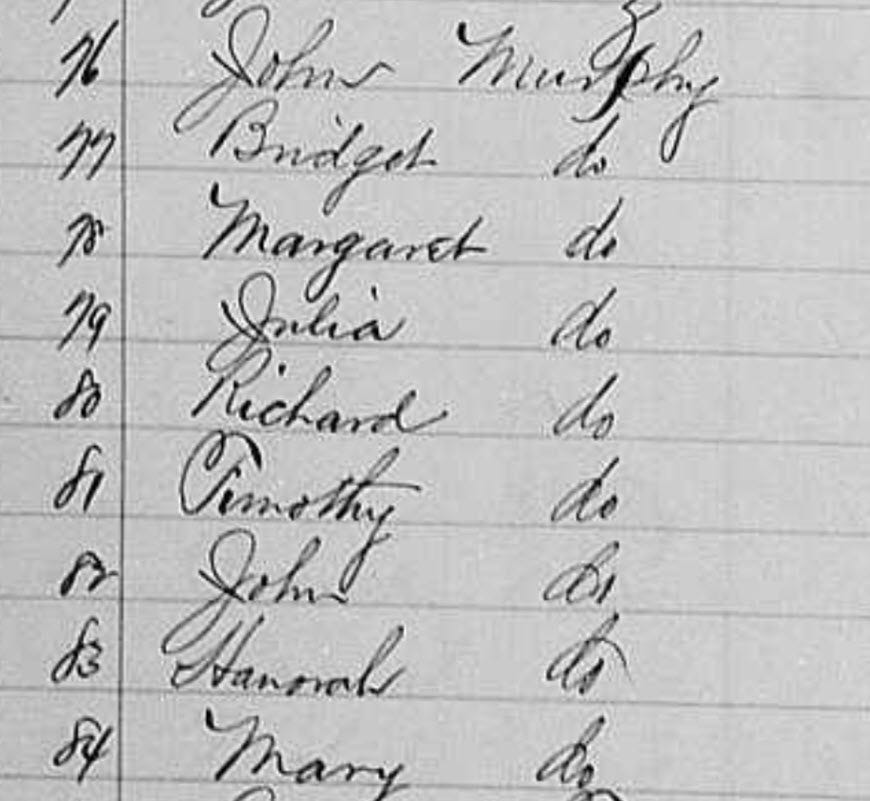 76 John Murphy
77 Bridget do
78 Margaret do
79 Julia do
80 Richard do
81 Timothy do
82 John do
83 Hanorah do
84 Mary do